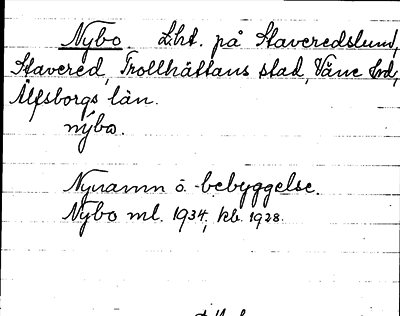 Nybo. Lht. på Staveredslund,
Stavered, Trollhättans stad, Väne hd,
Älfsborgs län.
nýbo.
Nynamn o. bebyggelse.
Nybo ml. 1934, kb. 1928.